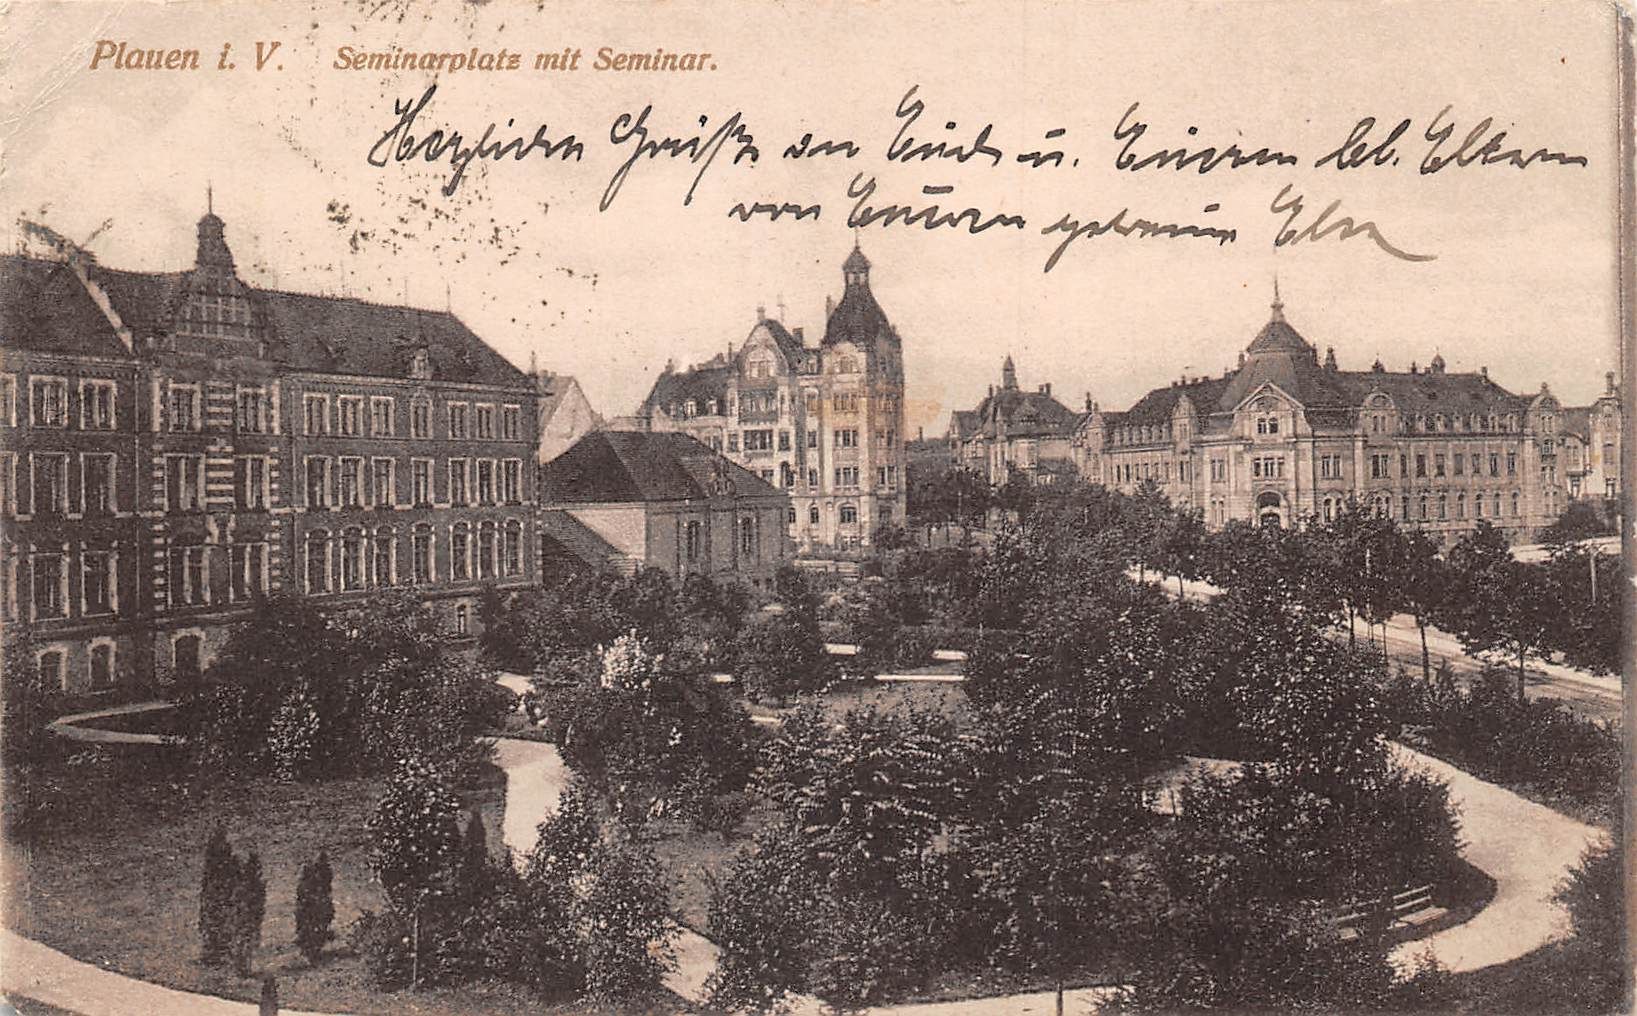 Plauen i. V. Seminarplatz mit Seminar.
Herzliche Grüße an Euch u. Euere lb. Eltern
von Eurer getreuen Else